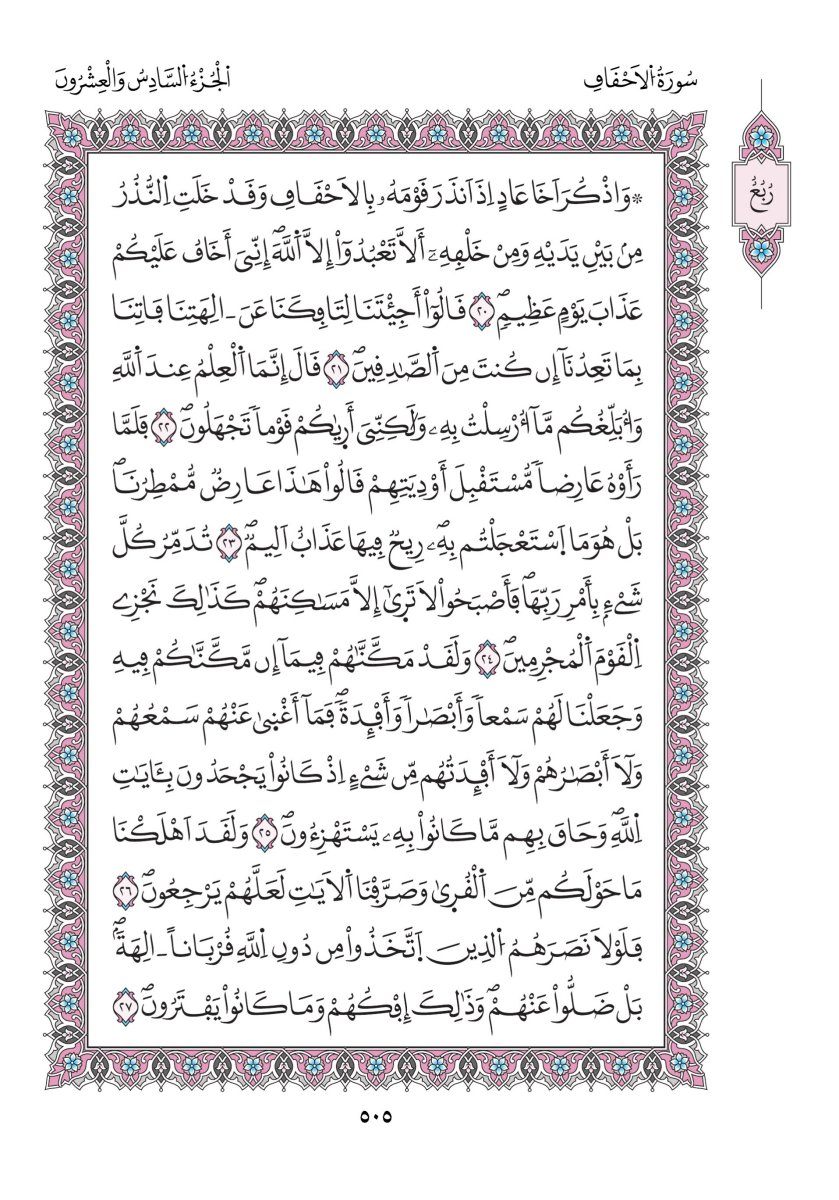 سُورَةُ اُلَاحْقَافِ
اُلْجُزْءُ اُلسَّادِسُ وَالْعِشْرُونَ
رُبُعُ
۞وَاذْكُرَ اَخَا عَادٍ اِذَ اَنذَرَ قَوْمَهُۥ بِالَاحْقَافِ وَقَدْ خَلَتِ اِ۬لنُّذُرُ
مِنۢ بَيْنِ يَدَيْهِ وَمِنْ خَلْفِهِۦٓ أَلَّا تَعْبُدُوٓاْ إِلَّا اَ۬للَّهَۖ إِنِّيَ أَخَافُ عَلَيْكُمْ
عَذَابَ يَوْمٍ عَظِيمٖۖ ٢٠ قَالُوٓاْ أَجِئْتَنَا لِتَافِكَنَا عَنَ ـ الِهَتِنَا فَاتِنَا
بِمَا تَعِدُنَآ إِن كُنتَ مِنَ اَ۬لصَّٰدِقِينَۖ ٢١ قَالَ إِنَّمَا اَ۬لْعِلْمُ عِندَ اَ۬للَّهِ
وَأُبَلِّغُكُم مَّآ أُرْسِلْتُ بِهِۦ وَلَٰكِنِّيَ أَر۪يٰكُمْ قَوْماٗ تَجْهَلُونَۖ ٢٢ فَلَمَّا
رَأَوْهُ عَارِضاٗ مُّسْتَقْبِلَ أَوْدِيَتِهِمْ قَالُواْ هَٰذَا عَارِضٞ مُّمْطِرُنَاۖ
بَلْ هُوَ مَا اَ۪سْتَعْجَلْتُم بِهِۦۖ رِيحٞ فِيهَا عَذَابٌ اَلِيمٞۖ ٢٣ تُدَمِّرُ كُلَّ
شَےْءِۢ بِأَمْرِ رَبِّهَاۖ فَأَصْبَحُواْ لَا تَر۪يٰٓ إِلَّا مَسَٰكِنَهُمْۖ كَذَٰلِكَ نَجْزِے
اِ۬لْقَوْمَ اَ۬لْمُجْرِمِينَۖ ٢٤ وَلَقَدْ مَكَّنَّٰهُمْ فِيمَآ إِن مَّكَّنَّٰكُمْ فِيهِ
وَجَعَلْنَا لَهُمْ سَمْعاٗ وَأَبْصَٰراٗ وَأَفْـِٕدَةٗۖ فَمَآ أَغْن۪يٰ عَنْهُمْ سَمْعُهُمْ
وَلَآ أَبْصَٰرُهُمْ وَلَآ أَفْـِٕدَتُهُم مِّن شَےْءٍ اِذْ كَانُواْ يَجْحَدُونَ بِـَٔايَٰتِ
اِ۬للَّهِۖ وَحَاقَ بِهِم مَّا كَانُواْ بِهِۦ يَسْتَهْزِءُونَۖ ٢٥ وَلَقَدَ اَهْلَكْنَا
مَا حَوْلَكُم مِّنَ اَ۬لْقُر۪يٰ وَصَرَّفْنَا اَ۬لَايَٰتِ لَعَلَّهُمْ يَرْجِعُونَۖ ٢٦
فَلَوْلَا نَصَرَهُمُ اُ۬لذِينَ اَ۪تَّخَذُواْ مِن دُونِ اِ۬للَّهِ قُرْبَاناً ـ الِهَةَۢۖ
بَلْ ضَلُّواْ عَنْهُمْۖ وَذَٰلِكَ إِفْكُهُمْ وَمَا كَانُواْ يَفْتَرُونَۖ ٢٧
٥٠٥